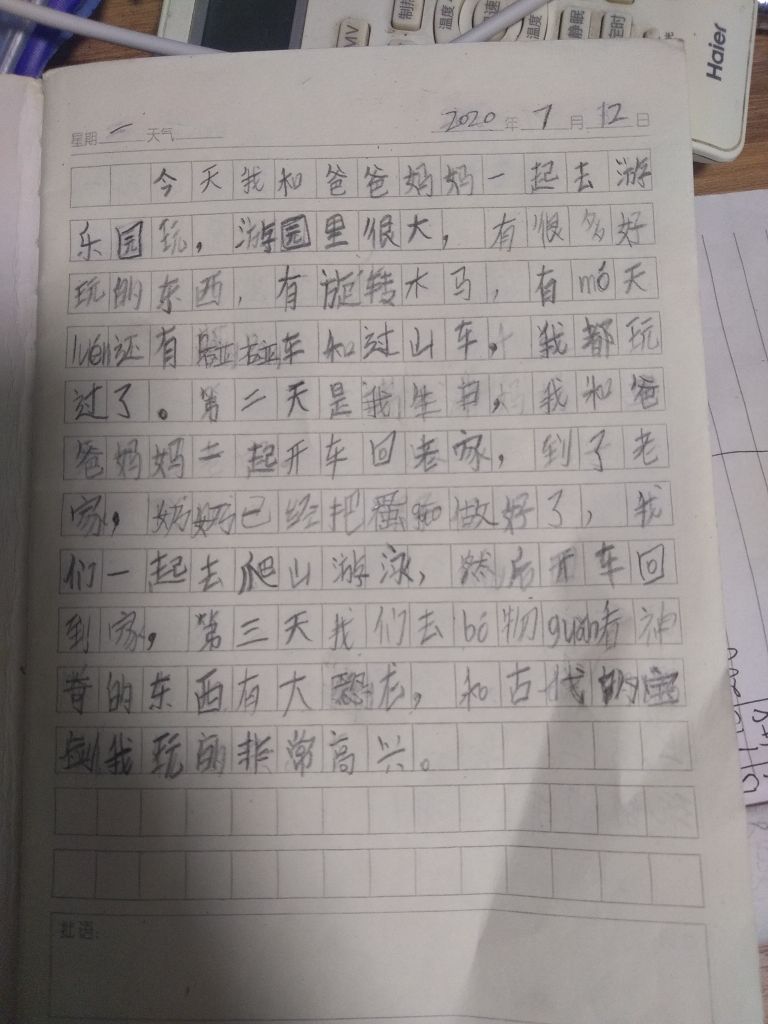 制热 温度 风速 温度 静眠 定时
MV
Haier
星期 一 天气 2020 年 7 月 12 日
今天我和爸爸妈妈一起去游
乐园玩，游园里很大，有很多好
玩的东西，有旋转木马，有mó天
lún还有碰碰车和过山车，我都玩
过了。第二天是我生日，我和爸
爸妈妈一起开车回老家，到了老
家，奶奶已经把蛋gāo做好了，我
们一起去爬山游泳，然后开车回
到家，第三天我们去bó物guǎn看神
奇的东西有大恐龙，和古代的宝
剑我玩的非常高兴。
批语：